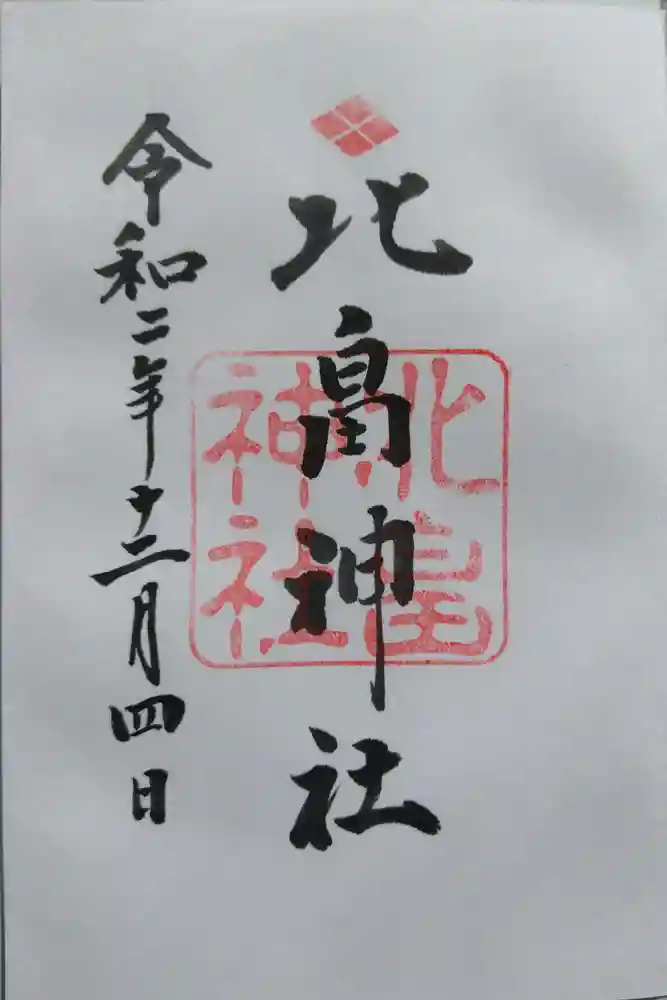 北畠神社
北畠
神社
令和二年十二月四日